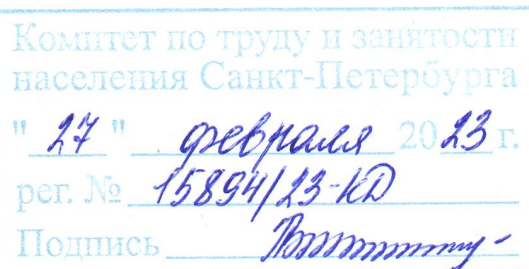 Комитет по труду и занятости
населения Санкт-Петербурга
" 27 " февраля 2023 г.
рег. № 15894/23-КД
Подпись